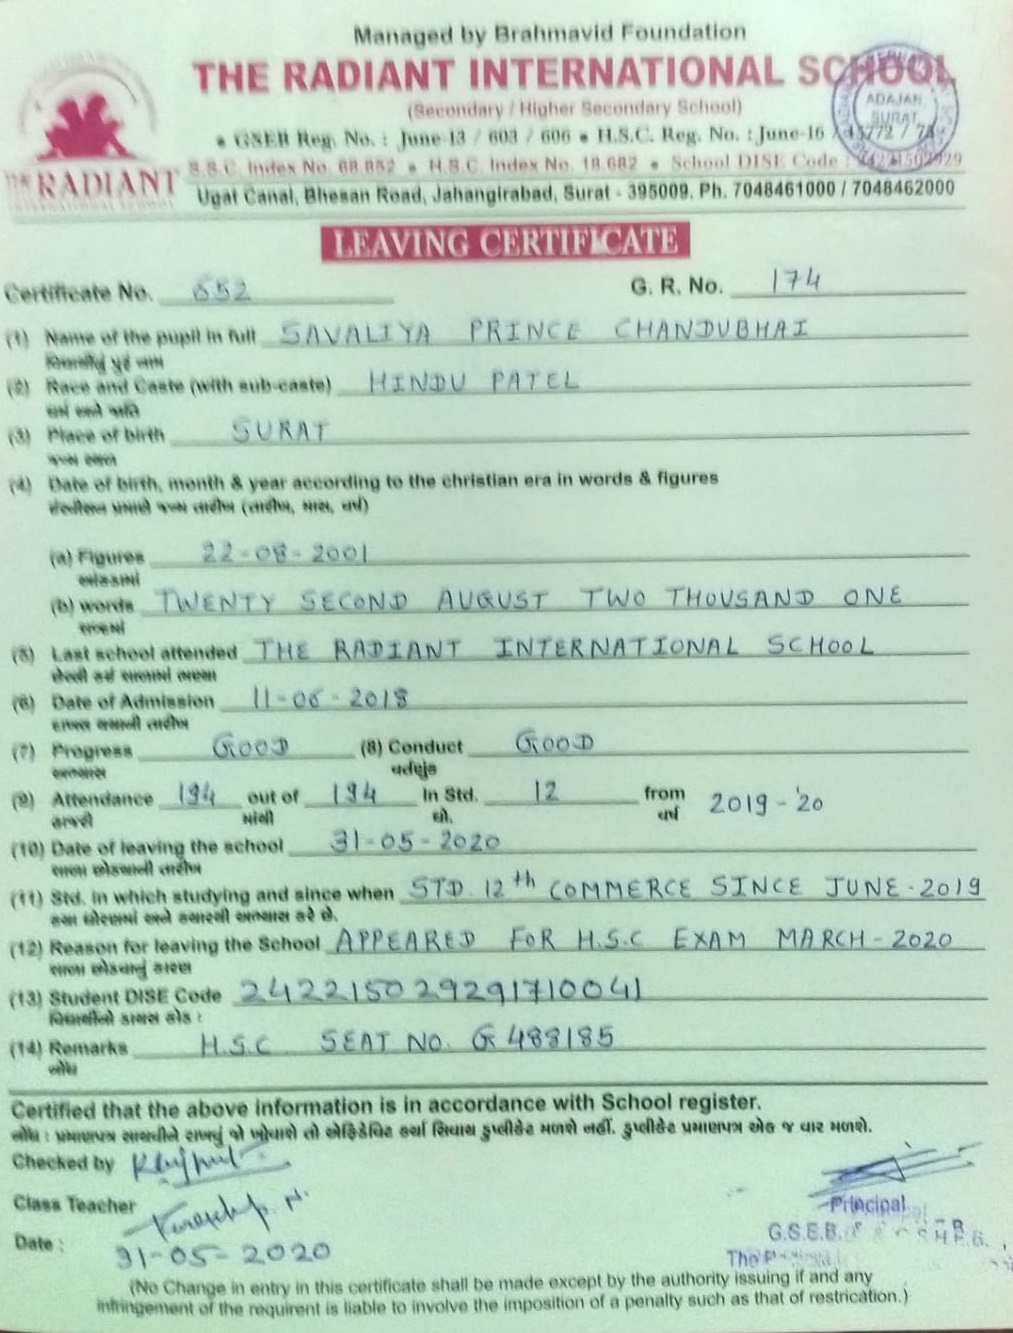 Managed by Brahmavid Foundation
THE RADIANT INTERNATIONAL SCHOOL
(Secondary / Higher Secondary School)
• GSEB Reg. No. : June-13 / 603 / 606 • H.S.C. Reg. No. : June-16 /
S.S.C. Index No. 68.852 • H.S.C. Index No. 18.682 • School DISE Code :
Ugat Canal, Bhesan Road, Jahangirabad, Surat - 395009. Ph. 7048461000 / 7048462000
ADAJAN,
SURAT.
THE RADIANT
INTERNATIONAL SCHOOL
LEAVING CERTIFICATE
Certificate No. 652 G. R. No. 174
(1) Name of the pupil in full SAVALIYA PRINCE CHANDUBHAI
વિદ્યાર્થીનું પુરૂં નામ
(2) Race and Caste (with sub-caste) HINDU PATEL
ધર્મ અને જાતિ
(3) Place of birth SURAT
જન્મ સ્થળ
(4) Date of birth, month & year according to the christian era in words & figures
ઈસ્વીસન પ્રમાણે જન્મ તારીખ (તારીખ, માસ, વર્ષ)
(a) Figures 22-08-2001
આંકડામાં
(b) words TWENTY SECOND AUGUST TWO THOUSAND ONE
શબ્દમાં
(5) Last school attended THE RADIANT INTERNATIONAL SCHOOL
(6) Date of Admission 11-06-2018
(7) Progress GOOD (8) Conduct GOOD
અભ્યાસ વર્તણુંક
(9) Attendance 194 out of 194 In Std. 12 from 2019-'20
હાજરી માંથી ધો. વર્ષ
(10) Date of leaving the school 31-05-2020
શાળા છોડયાની તારીખ
(11) Std. in which studying and since when STD. 12th COMMERCE SINCE JUNE-2019
કયા ધોરણમાં અને ક્યારથી અભ્યાસ કરે છે.
(12) Reason for leaving the School APPEARED FOR H.S.C EXAM MARCH-2020
શાળા છોડયાનું કારણ
(13) Student DISE Code 242215029291710041
વિદ્યાર્થીનો ડાયસ કોડ :
(14) Remarks H.S.C SEAT NO. G 488185
નોંધ
Certified that the above information is in accordance with School register.
નોંધ : પ્રમાણપત્ર સાચવીને રાખવું જો ખોવાશે તો એફિડેવિટ કર્યા સિવાય ડુપ્લીકેટ મળશે નહીં. ડુપ્લીકેટ પ્રમાણપત્ર એક જ વાર મળશે.
Checked by
Class Teacher
Principal
Date : 31-05-2020
G.S.E.B.
(No Change in entry in this certificate shall be made except by the authority issuing if and any
infringement of the requirent is liable to involve the imposition of a penalty such as that of restrication.)